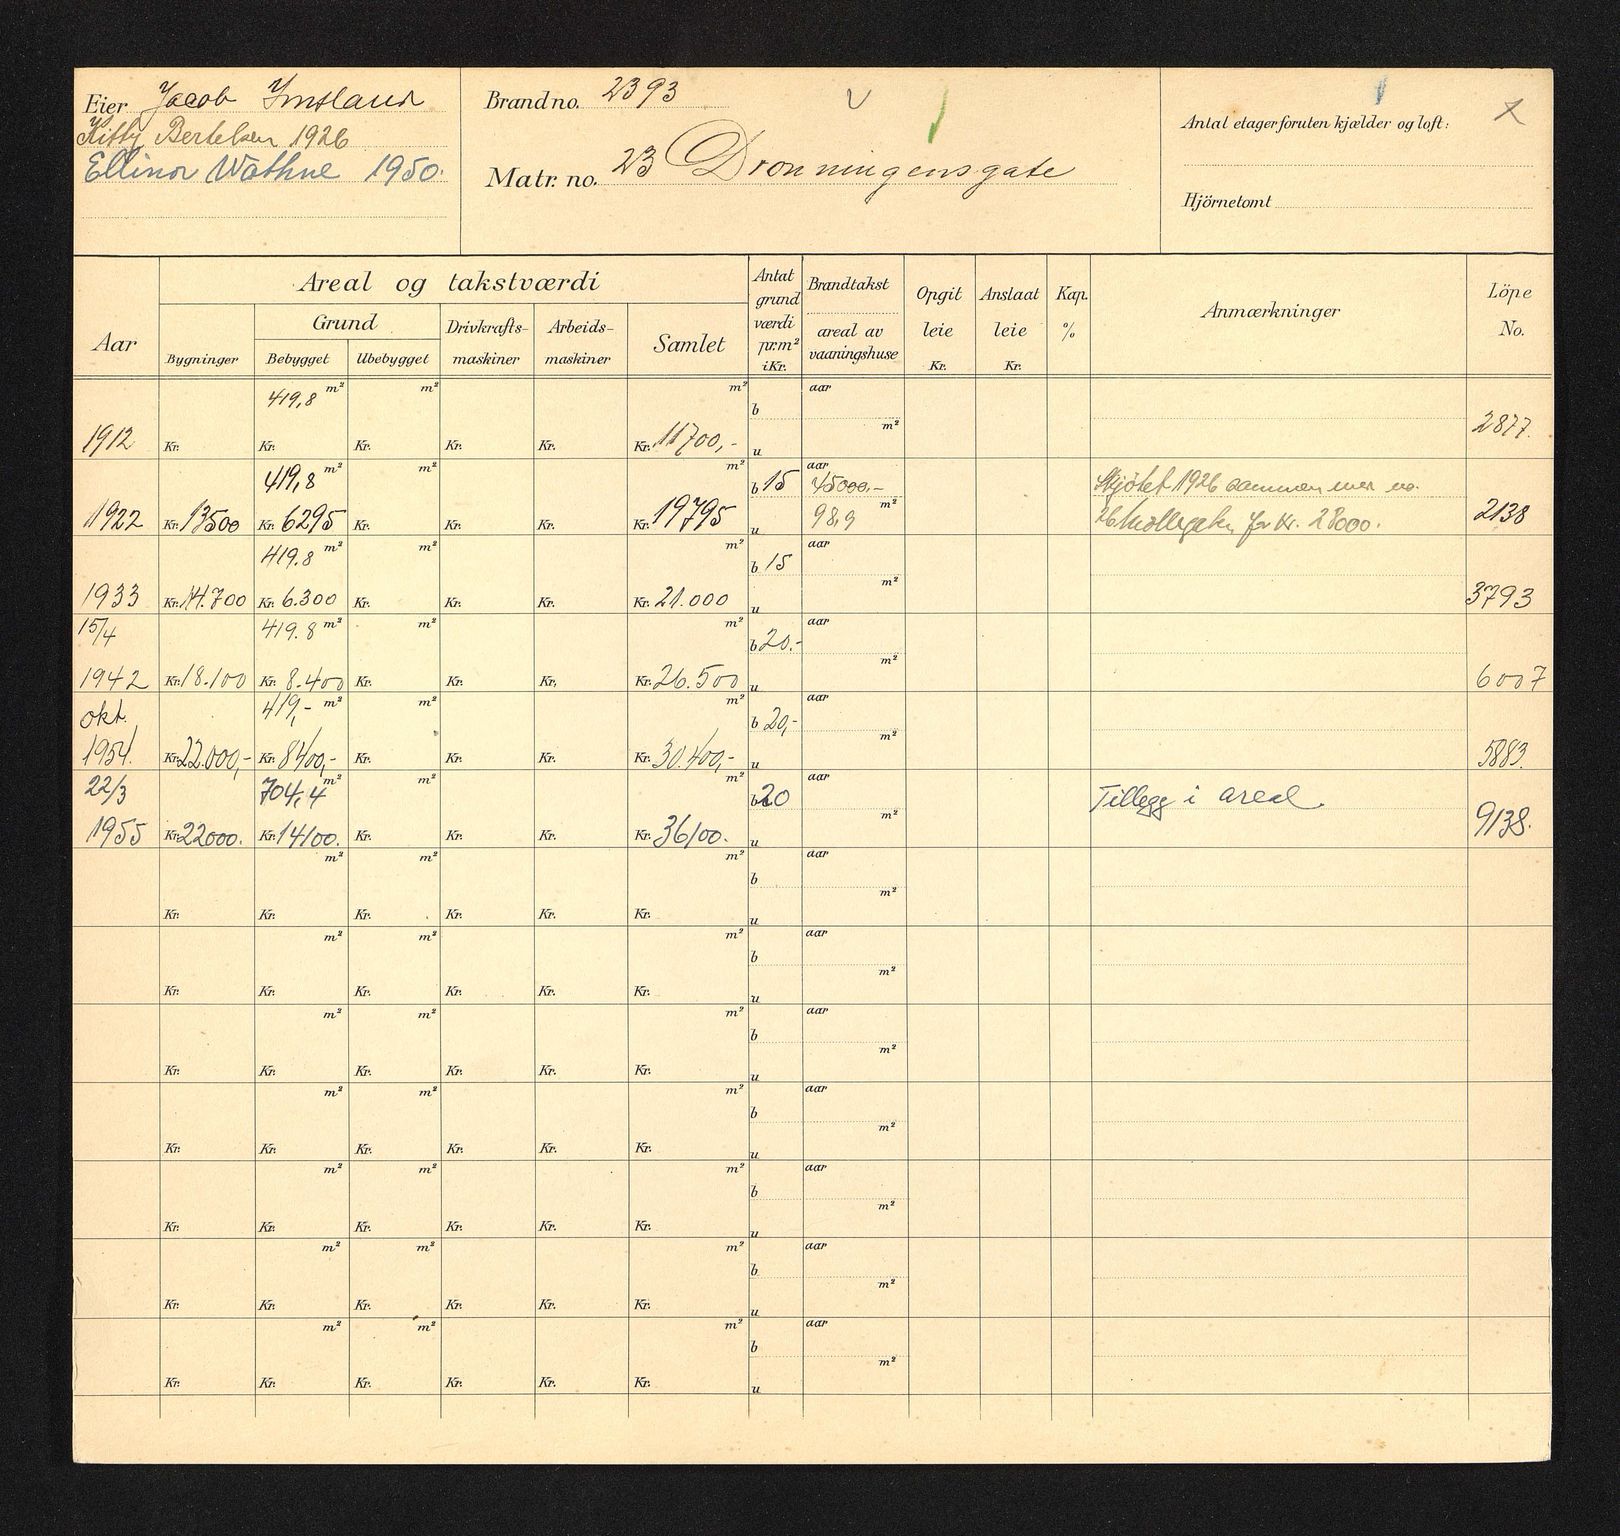 Eier Jacob Imsland
Kitty Bertelsen 1926
Ellinor Wathne 1950.
Brandno. 2393
Matr. no. 23 Dronningensgate
Antal etager foruten kjælder og loft:
Hjörnetomt
Aar
Areal og takstværdi
Grund
Bygninger
Bebygget
Ubebygget
Drivkrafts-maskiner
Arbeids-maskiner
Samlet
Antat grund værdi pr. m² i Kr.
Brandtakst
areal av vaaningshuse
Opgit leie Kr.
Anslaat leie Kr.
Kap. %
Anmærkninger
Löpe No.
419,8 m² m² m² aar
b
m²
1912 Kr. Kr. Kr. Kr. Kr. Kr. 11700,- u 2877.
419,8 m² m² m² b 15 aar 45000,- Skjötet 1926 sammen med no.
m²
1922 Kr. 13500 Kr. 6295 Kr. Kr. Kr. Kr. 19795 u 98,9 26 for Kr. 28000. 2138
419.8 m² m² m² b 15 aar
m²
1933 Kr. 14.700 Kr. 6.300 Kr. Kr. Kr. Kr. 21.000 u 3793
15/4 419.8 m² m² m² b 20.- aar
m²
1942 Kr. 18.100 Kr. 8.400 Kr. Kr. Kr. Kr. 26.500 u 6007
okt. 419,- m² m² m² b 20,- aar
m²
1954. Kr. 22.000,- Kr. 8400,- Kr. Kr. Kr. Kr. 30.400,- u 5883.
22/3 704,4 m² m² m² b 20 aar Tillegg i areal.
m²
1955 Kr. 22000. Kr. 14100. Kr. Kr. Kr. Kr. 36100. u 9138.
m² m² m² aar
b
m²
Kr. Kr. Kr. Kr. Kr. Kr. u
m² m² m² aar
b
m²
Kr. Kr. Kr. Kr. Kr. Kr. u
m² m² m² aar
b
m²
Kr. Kr. Kr. Kr. Kr. Kr. u
m² m² m² aar
b
m²
Kr. Kr. Kr. Kr. Kr. Kr. u
m² m² m² aar
b
m²
Kr. Kr. Kr. Kr. Kr. Kr. u
m² m² m² aar
b
m²
Kr. Kr. Kr. Kr. Kr. Kr. u
m² m² m² aar
b
m²
Kr. Kr. Kr. Kr. Kr. Kr. u